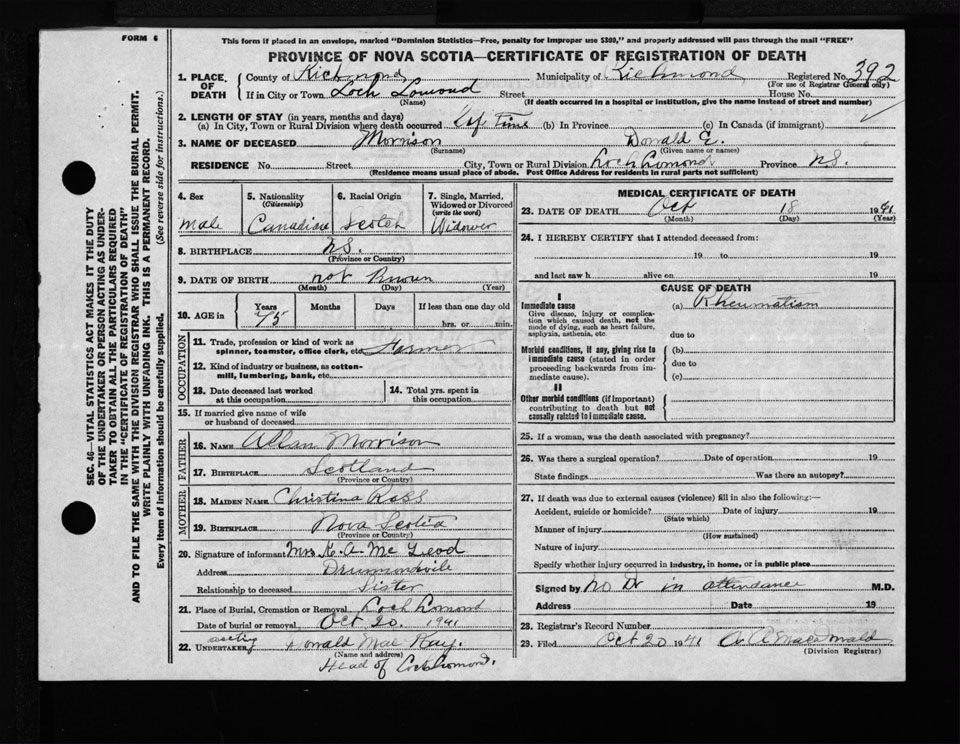 FORM 6
This form if placed in an envelope, marked "Dominion Statistics—Free, penalty for improper use $300," and properly addressed will pass through the mail "FREE"
PROVINCE OF NOVA SCOTIA—CERTIFICATE OF REGISTRATION OF DEATH
1. PLACE OF DEATH { County of Richmond Municipality of Richmond Registered No. 392
(For use of Registrar General only)
If in City or Town Loch Lomond Street House No.
(Name) (If death occurred in a hospital or institution, give the name instead of street and number)
2. LENGTH OF STAY (in years, months and days)
(a) In City, Town or Rural Division where death occurred Life Time (b) In Province (c) In Canada (if immigrant)
3. NAME OF DECEASED Morrison Donald E.
(Surname) (Given name or names)
RESIDENCE No. Street City, Town or Rural Division Loch Lomond Province N.S.
(Residence means usual place of abode. Post Office Address for residents in rural parts not sufficient)
4. Sex male
5. Nationality (Citizenship) Canadian
6. Racial Origin Scotch
7. Single, Married, Widowed or Divorced (write the word) Widower
8. BIRTHPLACE N.S.
(Province or Country)
9. DATE OF BIRTH not known
(Month) (Day) (Year)
10. AGE in { Years 75 Months Days If less than one day old hrs. or min.
OCCUPATION
11. Trade, profession or kind of work as spinner, teamster, office clerk, etc. Farmer
12. Kind of industry or business, as cotton-mill, lumbering, bank, etc.
13. Date deceased last worked at this occupation
14. Total yrs. spent in this occupation
15. If married give name of wife or husband of deceased
FATHER
16. NAME Allan Morrison
17. BIRTHPLACE Scotland
(Province or Country)
MOTHER
18. MAIDEN NAME Christina Ross
19. BIRTHPLACE Nova Scotia
(Province or Country)
20. Signature of informant Mrs K. A. McLeod
Address Drumondvile
Relationship to deceased Sister
21. Place of Burial, Cremation or Removal Loch Lomond
Date of burial or removal Oct 20. 1941
22. acting UNDERTAKER Donald MacKay.
(Name and address)
Head of Loch Lomond.
MEDICAL CERTIFICATE OF DEATH
23. DATE OF DEATH Oct 18 1941
(Month) (Day) (Year)
24. I HEREBY CERTIFY that I attended deceased from:
19 to 19
and last saw h alive on 19
CAUSE OF DEATH
I
Immediate cause (a) Rheumatism
Give disease, injury or complication which caused death, not the mode of dying, such as heart failure, asphyxia, asthenia, etc.
due to
Morbid conditions, if any, giving rise to immediate cause (stated in order proceeding backwards from immediate cause).
(b)
due to
(c)
II
Other morbid conditions (if important) contributing to death but not causally related to immediate cause.
25. If a woman, was the death associated with pregnancy?
26. Was there a surgical operation? Date of operation 19
State findings Was there an autopsy?
27. If death was due to external causes (violence) fill in also the following:—
Accident, suicide or homicide? Date of injury 19
(State which)
Manner of injury
(How sustained)
Nature of injury
Specify whether injury occurred in industry, in home, or in public place
Signed by no Dr in attendance M.D.
Address Date 19
28. Registrar's Record Number
29. Filed Oct 20 1941 A. A. MacDonald
(Division Registrar)
SEC. 46—VITAL STATISTICS ACT MAKES IT THE DUTY
OF THE UNDERTAKER OR PERSON ACTING AS UNDER-
TAKER TO OBTAIN ALL THE PARTICULARS REQUIRED
IN THE "CERTIFICATE OF REGISTRATION OF DEATH"
AND TO FILE THE SAME WITH THE DIVISION REGISTRAR WHO SHALL ISSUE THE BURIAL PERMIT.
WRITE PLAINLY WITH UNFADING INK. THIS IS A PERMANENT RECORD.
Every item of information should be carefully supplied. (See reverse side for instructions.)